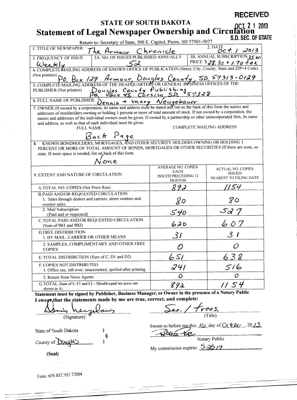 RECEIVED
OCT 21 2013
S.D. SEC. OF STATE
STATE OF SOUTH DAKOTA
Statement of Legal Newspaper Ownership and Circulation
Return to: Secretary of State, 500 E. Capitol, Pierre, SD 57501-5077
1. TITLE OF NEWSPAPER The Armour Chronicle
2. DATE Oct. 1, 2013
3. FREQUENCY OF ISSUE Weekly
3A. NO. OF ISSUES PUBLISHED ANNUALLY 52
3B. ANNUAL SUBSCRIPTION PRICE
4. COMPLETE MAILING ADDRESS OF KNOWN OFFICE OF PUBLICATION (Street, City, County, State and ZIP+4 Code) (Not printers)
PO Box 129 Armour Douglas County SD 57313-0129
5. COMPLETE MAILING ADDRESS OF THE HEADQUARTERS OR GENERAL BUSINESS OFFICES OF THE PUBLISHER (Not printer)
Douglas County Publishing
PO Box 45 Corsica, SD 57328
6. FULL NAME OF PUBLISHER: Dennis & Mary Neugebauer
7. OWNER (If owned by a corporation, its name and address must be stated and also on the back of this form the names and
addresses of stockholders owning or holding 1 percent or more of total amount of stock. If not owned by a corporation, the
names and addresses of the individual owners must be given. If owned by a partnership or other unincorporated firm, its name
and address, as well as that of each individual must be given.
FULL NAME COMPLETE MAILING ADDRESS
Back Page
8. KNOWN BONDHOLDERS, MORTGAGES, AND OTHER SECURITY HOLDERS OWNING OR HOLDING 1
PERCENT OR MORE OF TOTAL AMOUNT OF BONDS, MORTGAGES OR OTHER SECURITIES (If there are none, so
state. If more space is needed, list on back of this form.
None
9. EXTENT AND NATURE OF CIRCULATION
AVERAGE NO. COPIES EACH ISSUED PRECEDING 12 MONTHS
ACTUAL NO. COPIES ISSUED NEAREST TO FILING DATE
A. TOTAL NO. COPIES (Net Press Run) 892 1154
B. PAID AND/OR REQUESTED CIRCULATION
1. Sales through dealers and carriers, street vendors and counter sales 80 80
2. Mail Subscription (Paid and or requested) 540 527
C. TOTAL PAID AND/OR REQUESTED CIRCULATION (Sum of 9B1 and 9B2) 620 607
D. FREE DISTRIBUTION
1. BY MAIL, CARRIER OR OTHER MEANS 31 31
2. SAMPLES, COMPLIMENTARY AND OTHER FREE COPIES 0 0
E. TOTAL DISTRIBUTION (Sum of C, D1 and D2) 651 638
F. COPIES NOT DISTRIBUTED
1. Office use, left over, unaccounted, spoiled after printing 241 516
2. Return from News Agents 0 0
G. TOTAL (Sum of E, F1 and F2 - Should equal net press run shown in A) 892 1154
Statement must be signed by Publisher, Business Manager, or Owner in the presence of a Notary Public
I swear that the statements made by me are true, correct, and complete:
Sec. / Treas.
(Signature) (Title)
State of South Dakota )
§
County of Douglas )
Sworn to before me this 16 day of October, 2013
Notary Public
My commission expires:
(Seal)